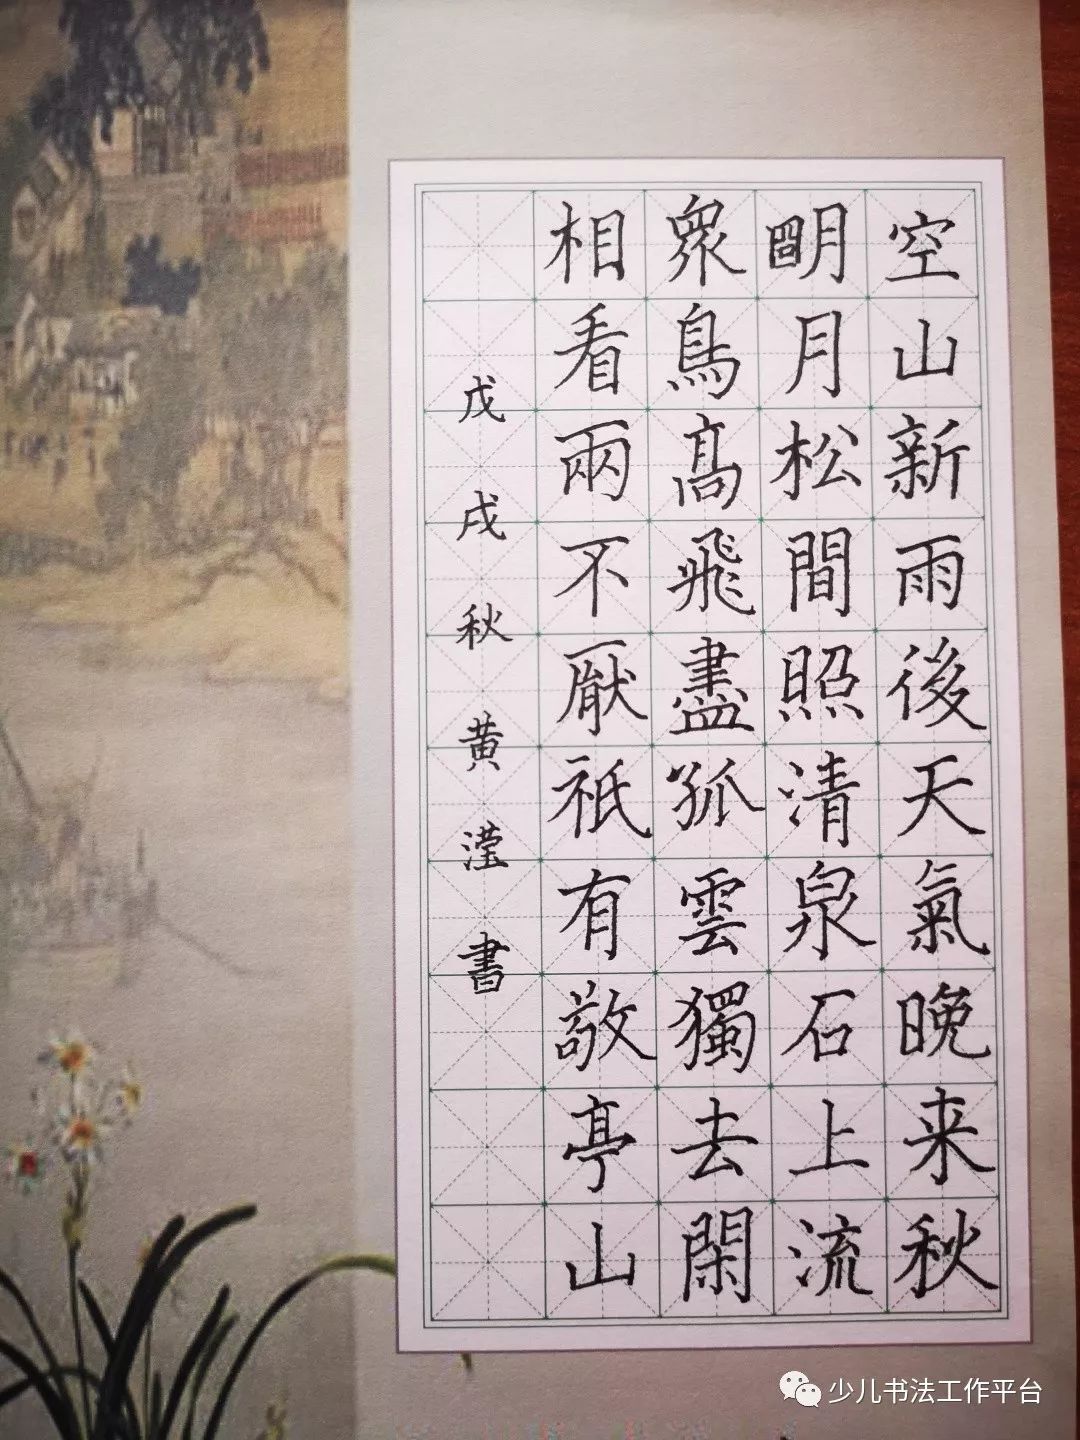 空山新雨後天氣晚来秋
朙月松間照清泉石上流
衆鳥髙飛盡孤雲獨去閑
相看兩不厭祇有敬亭山
戊戌秋黄滢書
少儿书法工作平台